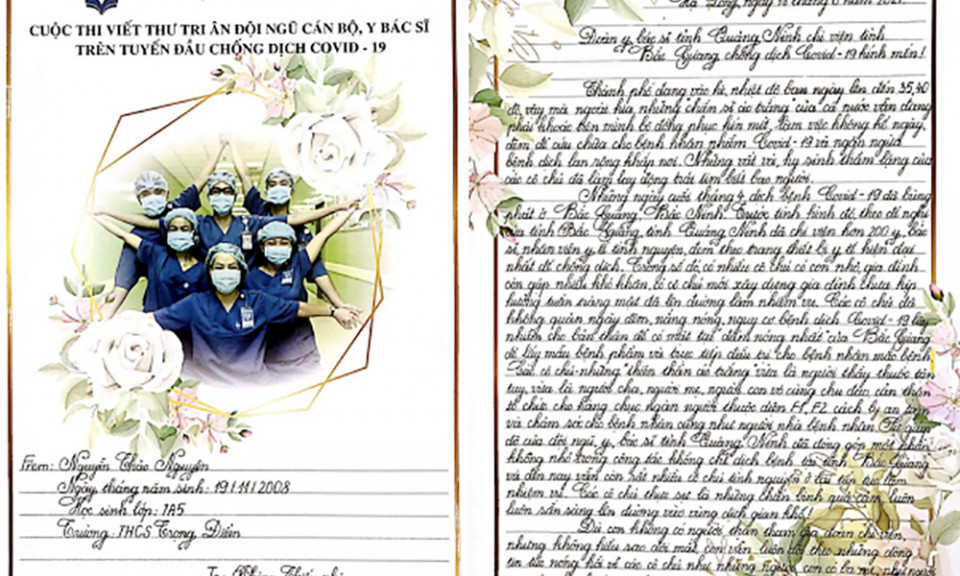 CUỘC THI VIẾT THƯ TRI ÂN ĐỘI NGŨ CÁN BỘ, Y BÁC SĨ
TRÊN TUYẾN ĐẦU CHỐNG DỊCH COVID - 19
From: Nguyễn Thảo Nguyên
Ngày tháng năm sinh: 19/11/2008
Học sinh lớp: 7A5
Trường: THCS Trọng Điểm
Hạ Long, ngày
Đoàn y, bác sĩ tỉnh Quảng Ninh chi viện tỉnh
Bắc Giang chống dịch Covid-19 kính mến!
Thành phố đang vào hè, nhiệt độ ban ngày lên đến 35, 40
độ, vậy mà ngoài kia, những "chiến sĩ áo trắng" của cả nước vẫn đang
phải khoác trên mình bộ đồng phục kín mít, làm việc không kể ngày,
đêm để cứu chữa cho bệnh nhân nhiễm Covid-19 và ngăn ngừa
bệnh dịch lan rộng khắp nơi. Những vất vả, hy sinh thầm lặng của
các cô chú đã làm lay động trái tim biết bao người.
Những ngày cuối tháng 4, dịch bệnh Covid-19 đã bùng
phát ở Bắc Giang, Bắc Ninh. Trước tình hình đó, theo đề nghị
của tỉnh Bắc Giang, tỉnh Quảng Ninh đã chi viện hơn 200 y, bác
sĩ, nhân viên y tế tình nguyện, đem theo trang thiết bị y tế hiện đại
nhất để chống dịch. Trong số đó, có nhiều cô chú có con nhỏ, gia đình
còn gặp nhiều khó khăn, có cô chú mới xây dựng gia đình chưa kịp
hưởng tuần trăng mật đã lên đường làm nhiệm vụ. Các cô chú đã
không quản ngày đêm, nắng nóng, nguy cơ bệnh dịch Covid-19 lây
nhiễm cho bản thân để có mặt tại điểm nóng nhất của Bắc Giang
để lấy mẫu bệnh phẩm và trực tiếp điều trị cho bệnh nhân mắc bệnh.
cô chú-những "thiên thần áo trắng" vừa là người thầy thuốc tận
tụy, vừa là người cha, người mẹ, người con vô cùng chu đáo, cẩn thận
tổ chức cho hàng chục ngàn người thuộc diện F1, F2 cách ly an toàn
và chăm sóc cho bệnh nhân cũng như người nhà bệnh nhân. Sự giúp
đỡ của đội ngũ y, bác sĩ tỉnh Quảng Ninh đã đóng góp một phần
không nhỏ trong công tác khống chế dịch bệnh tại tỉnh Bắc Giang
và đến nay vẫn còn rất nhiều cô chú tình nguyện ở lại tiếp tục làm
nhiệm vụ. Các cô chú thực sự là những chiến binh quả cảm, luôn
luôn sẵn sàng lên đường vào vùng dịch gian khổ!
Dù con không có người thân tham gia đoàn chi viện,
nhưng không hiểu sao đôi mắt con vẫn luôn dõi theo những dòng
tin tức nóng hổi về các cô chú như những người con có ba mẹ, như người